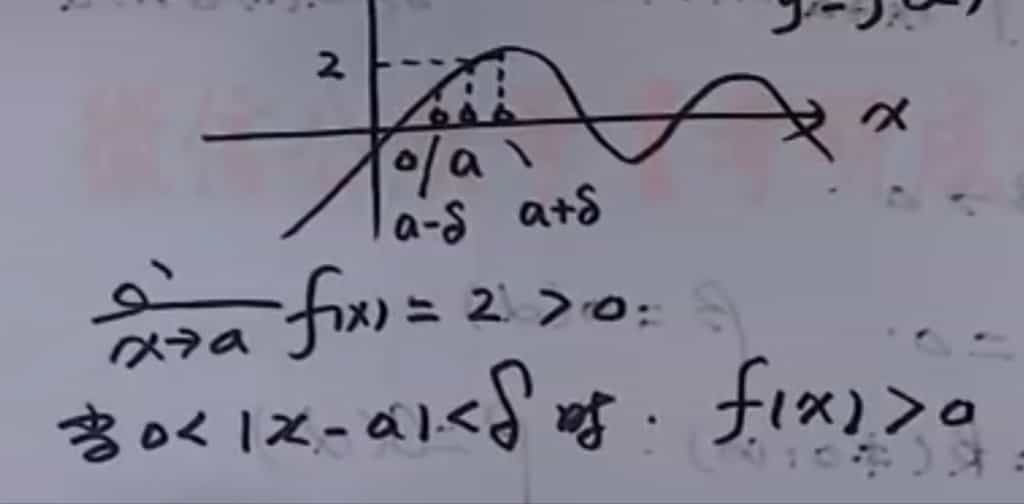 2
x
0 a
a-δ a+δ
lim x→a f(x) = 2 > 0.
当 0 < |x - a| < δ 时. f(x) > 0